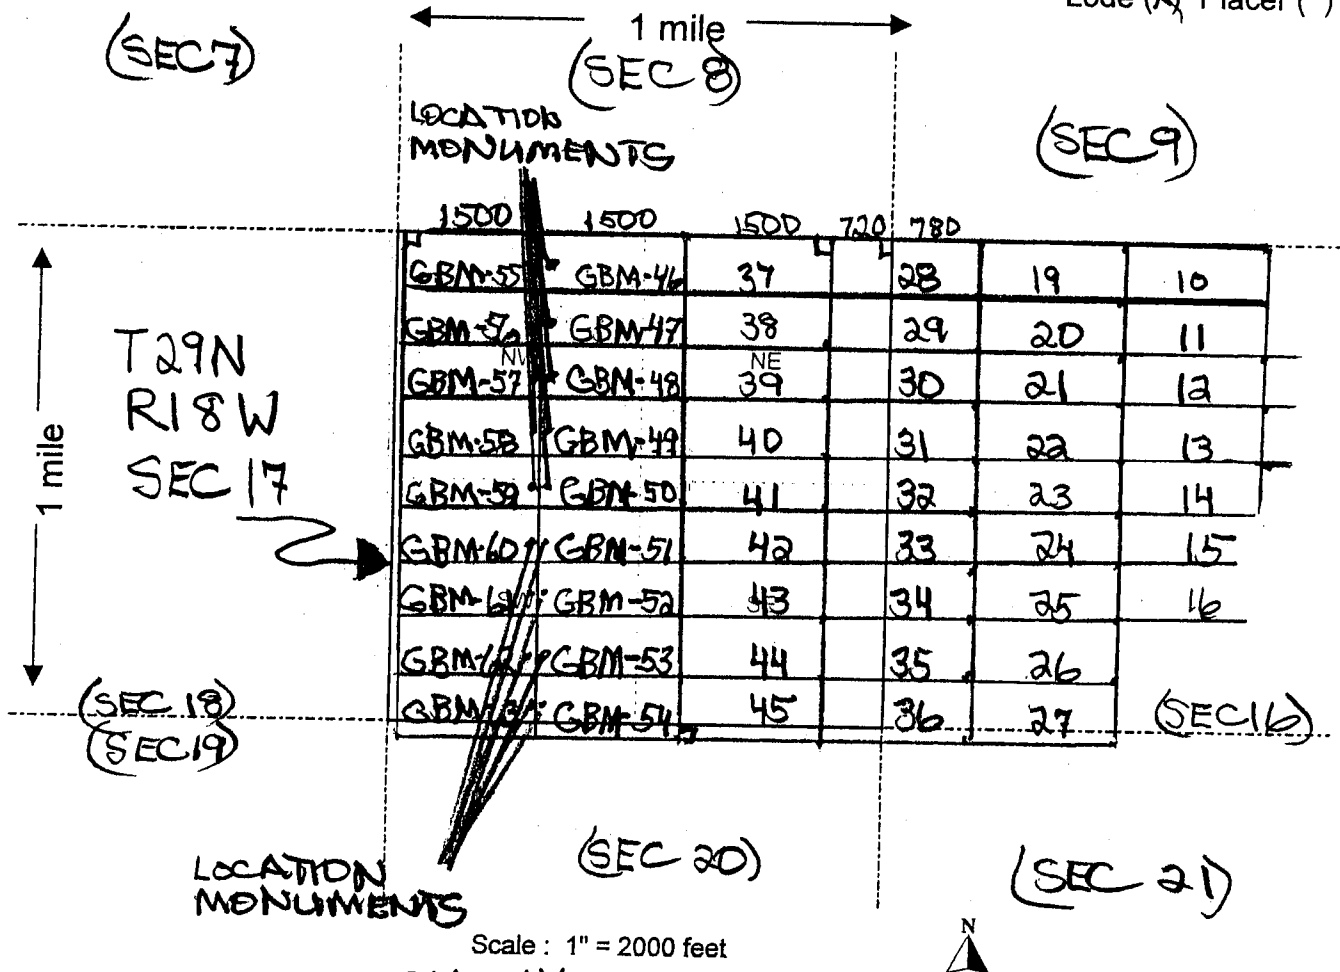 Lode (X) Placer ( )
1 mile
(SEC 7)
(SEC 8)
LOCATION
MONUMENTS
(SEC 9)
1500 1500 1500 720 780
GBM-55 GBM-46 37 28 19 10
GBM-56 GBM-47 38 29 20 11
NE
GBM-57 GBM-48 39 30 21 12
GBM-58 GBM-49 40 31 22 13
GBM-59 GBM-50 41 32 23 14
GBM-60 GBM-51 42 33 24 15
GBM-61 GBM-52 43 34 25 16
GBM-62 GBM-53 44 35 26
GBM- GBM-54 45 36 27
T29N
R18W
SEC 17
1 mile
(SEC 18)
(SEC 19)
(SEC 16)
(SEC 20)
(SEC 21)
LOCATION
MONUMENTS
N
Scale : 1" = 2000 feet